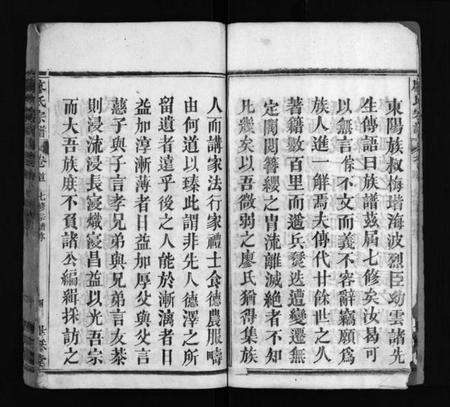 東陽族叔梅瑎海波烈臣功雲諸先
生傳語曰族譜茲屆七修矣汝曷可
以無言 不文而義不容辭竊願爲
族人進一解焉夫傳代廿餘世之久
著籍數百里而遙兵燹迭遭變遷無
定閥閱簪纓之冑流離滅絕者不知
凡幾矣以吾微弱之廖氏猶得集族
人而講家法行家禮士食德農服疇
由何道以臻此謂非先人德澤之所
留遺者遠乎後之人能於漸漓者日
益加淳漸薄者日益加厚父與父言
慈子與子言孝兄弟與兄弟言友恭
則浸流浸長寖熾寖昌益以光吾宗
而大吾族庶不負諸公編輯採訪之
氏宗譜 卷首 七